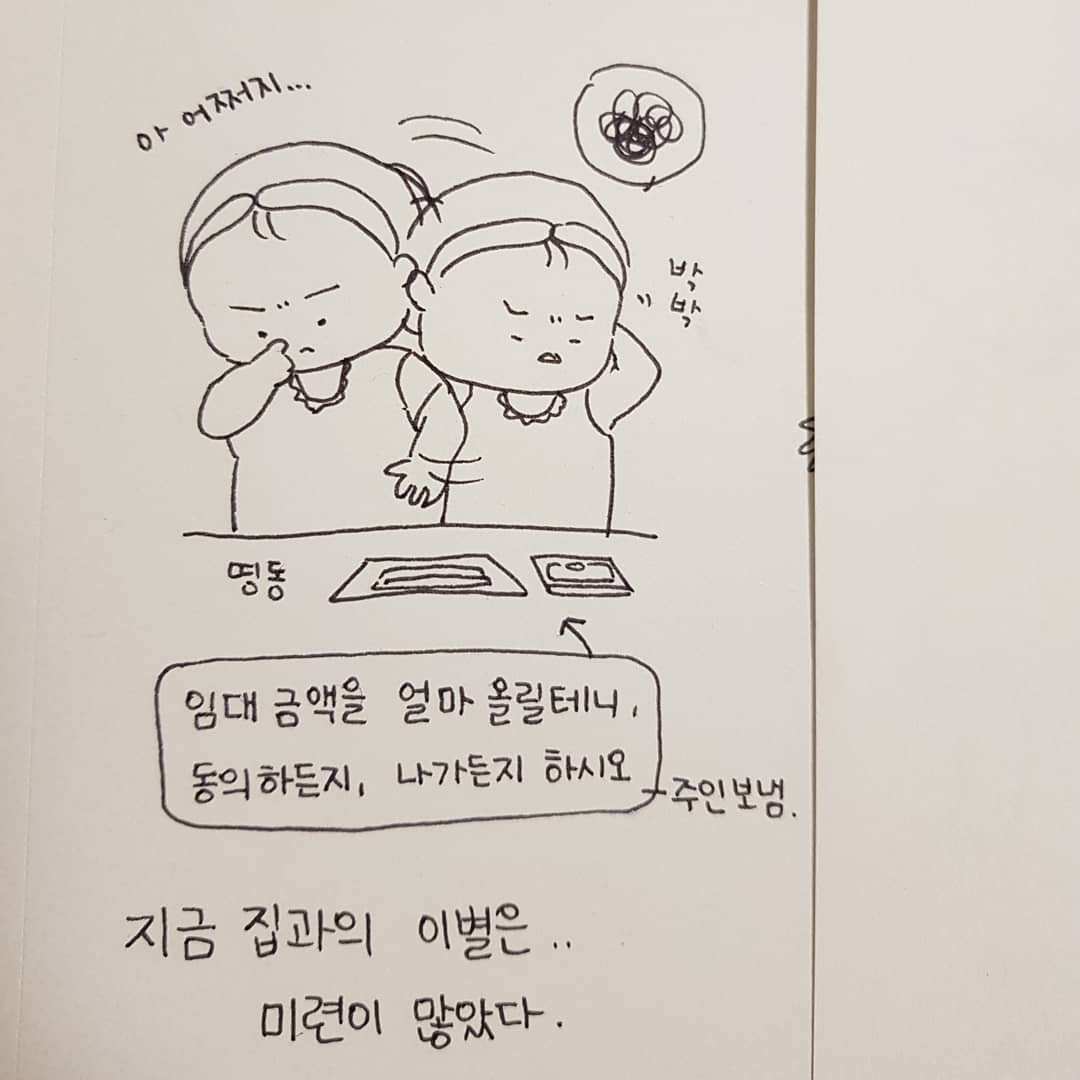 아 어쩌지...
박
박
띵동
임대 금액을 얼마 올릴테니,
동의하든지, 나가든지 하시오
주인보냄.
지금 집과의 이별은..
미련이 많았다.